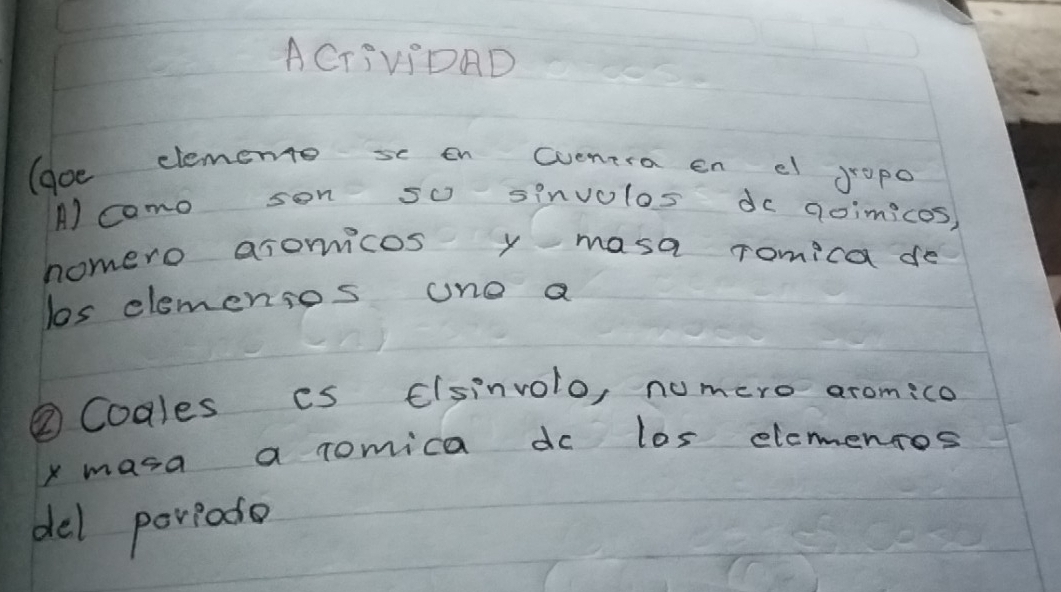 ACTiViDAD
(que elemento se en cuentra en el grupo
A) como son su sinvolos de quimicos,
nomero atomicos y masa tomica de
los elementos uno a
② Coales es Elsinvolo, numero atomico
y masa a tomica de los elementos
del poriodo